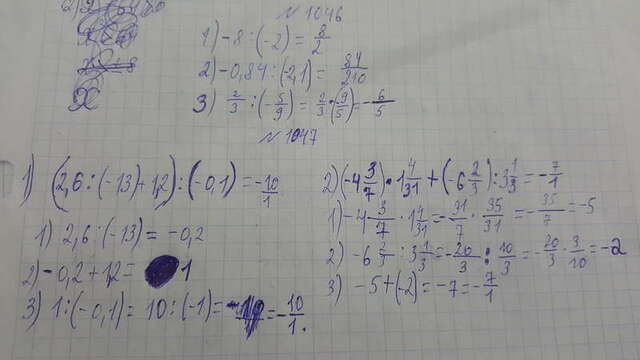 № 1046
1) -8 : (-2) = 8/2
2) -0,84 : (2,1) = 84/210
3) 2/3 : (-5/9) = 2/3 · (9/5) = -6/5
№ 1047
1) (2,6 : (-13) + 12) : (-0,1) = -10/1
1) 2,6 : (-13) = -0,2
2) -0,2 + 12 = 1
3) 1 : (-0,1) = 10 : (-1) = = -10/1.
2) (-4 3/7) · 1 4/31 + (-6 2/3) : 3 1/3 = -7/1
1) -4 3/7 · 1 4/31 = -31/7 · 35/31 = -35/7 = -5
2) -6 2/3 : 3 1/3 = -20/3 : 10/3 = -20/3 · 3/10 = -2
3) -5 + (-2) = -7 = -7/1